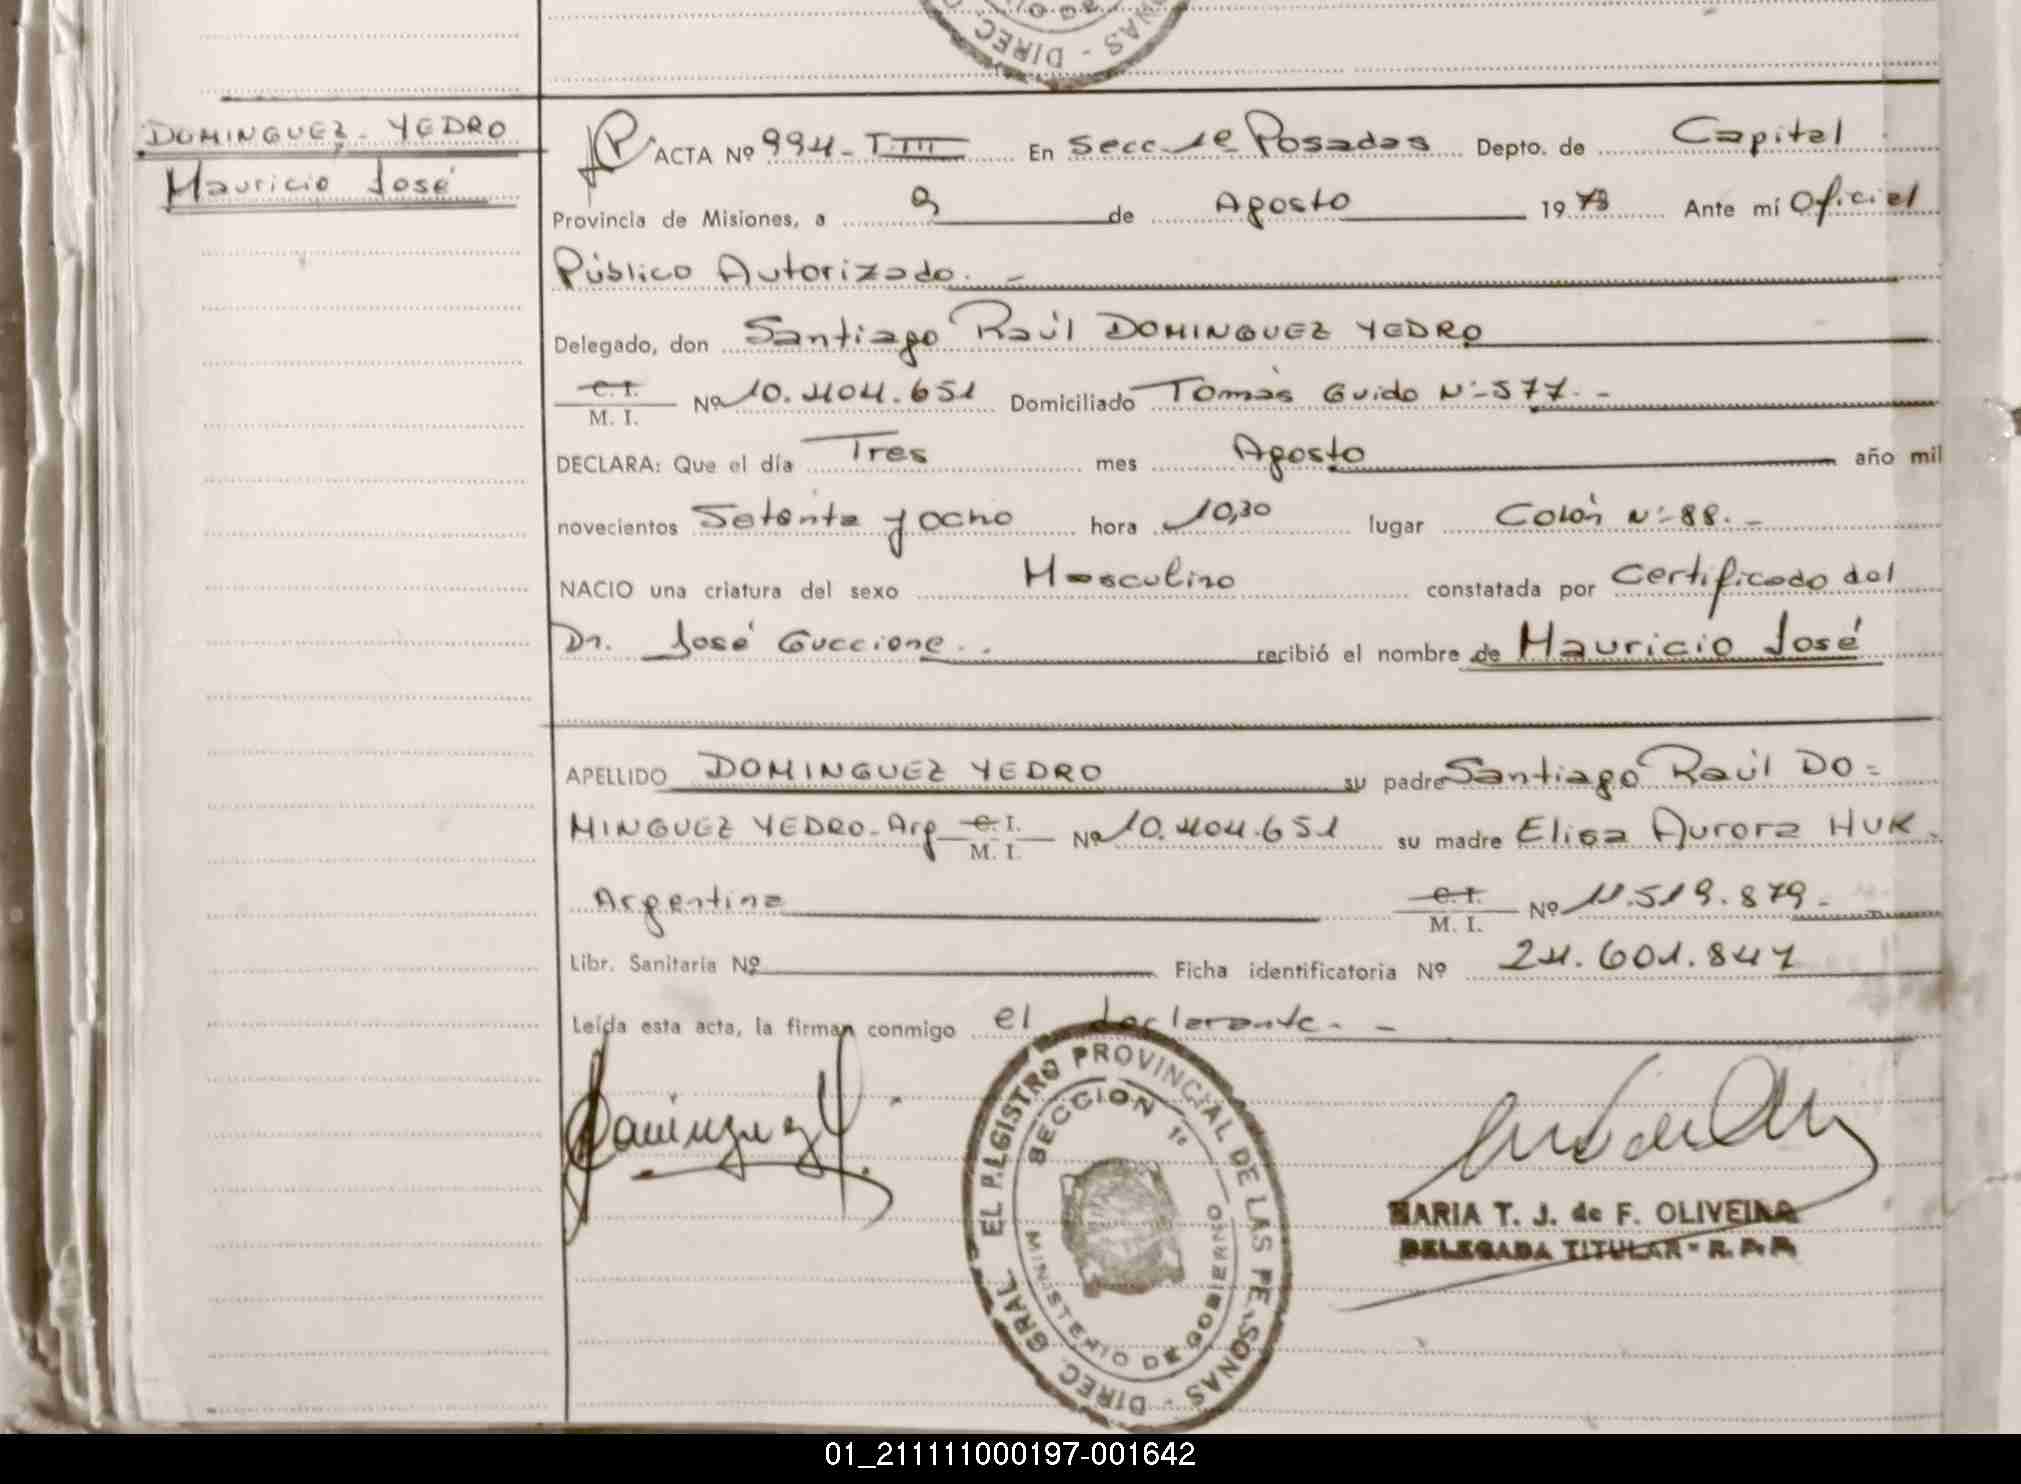 DOMINGUEZ YEDRO
Mauricio José
ACTA Nº 994 - T. III En Secc 1e Posadas Depto. de Capital
Provincia de Misiones, a 9 de Agosto 1978 Ante mí Oficial
Público Autorizado. -
Delegado, don Santiago Raúl DOMINGUEZ YEDRO
C. I.
M. I. Nº 10.404.651 Domiciliado Tomás Guido Nº 577. -
DECLARA: Que el día Tres mes Agosto año mil
novecientos Setenta y ocho hora 10,30 lugar Colón Nº 88. -
NACIO una criatura del sexo Masculino constatada por Certificado del
Dr. José Guccione. . recibió el nombre de Mauricio José
APELLIDO DOMINGUEZ YEDRO su padre Santiago Raúl DO=
MINGUEZ YEDRO - Arg C. I.
M. I. Nº 10.404.651 su madre Elisa Aurora HUK.
Argentina C. I.
M. I. Nº 11.519.879.-
Libr. Sanitaria Nº Ficha identificatoria Nº 24.601.847
Leída esta acta, la firman conmigo el declarante. -
Dominguez Y.
DIREC. GRAL. DEL REGISTRO PROVINCIAL DE LAS PERSONAS
SECCION 1e
MINISTERIO DE GOBIERNO
MARIA T. J. de F. OLIVEIRA
DELEGADA TITULAR - R. P. P.
01_211111000197-001642